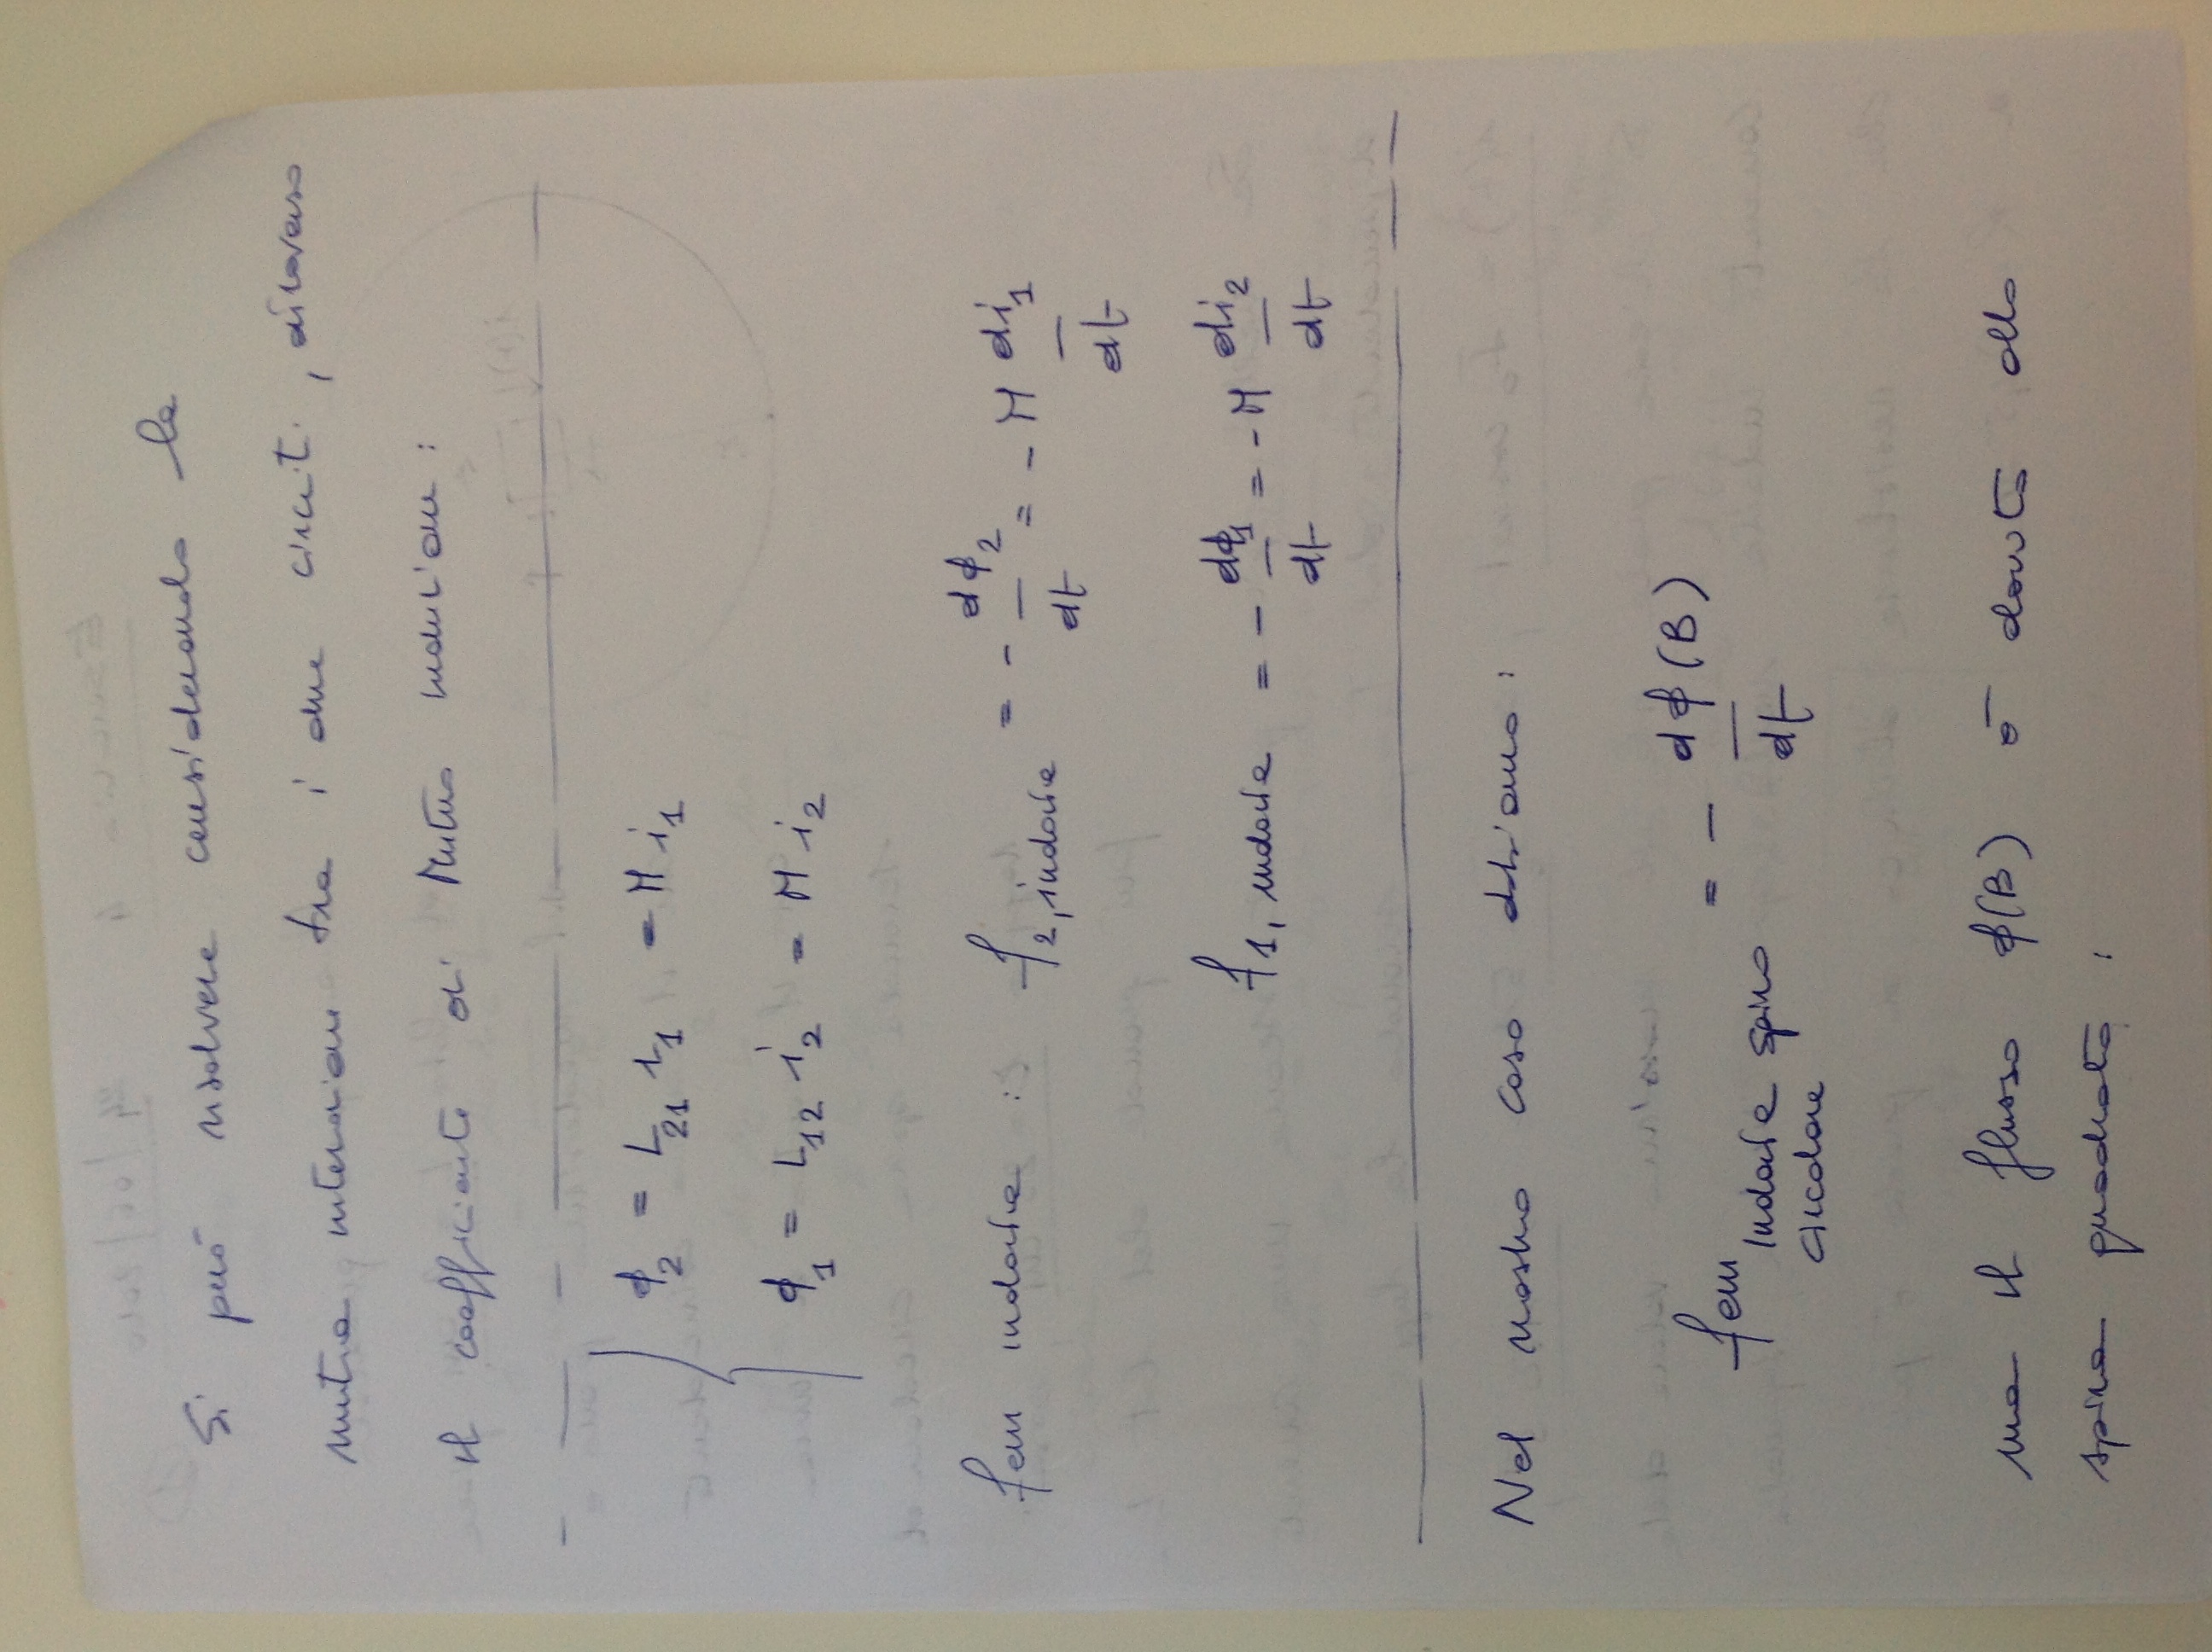 Si può risolvere considerando la
mutua interazione tra i due circuiti, attraverso
il coefficiente di Mutua induzione :
ϕ₂ = L₂₁ i₁ = M i₁
ϕ₁ = L₁₂ i₂ = M i₂
fem indotta : f₂,indotta = - dϕ₂/dt = - M di₁/dt
f₁,indotta = - dϕ₁/dt = - M di₂/dt
Nel nostro caso abbiamo :
fem indotta spira circolare = - dϕ(B)/dt
ma il flusso ϕ(B) è dovuto alla
spira quadrata :